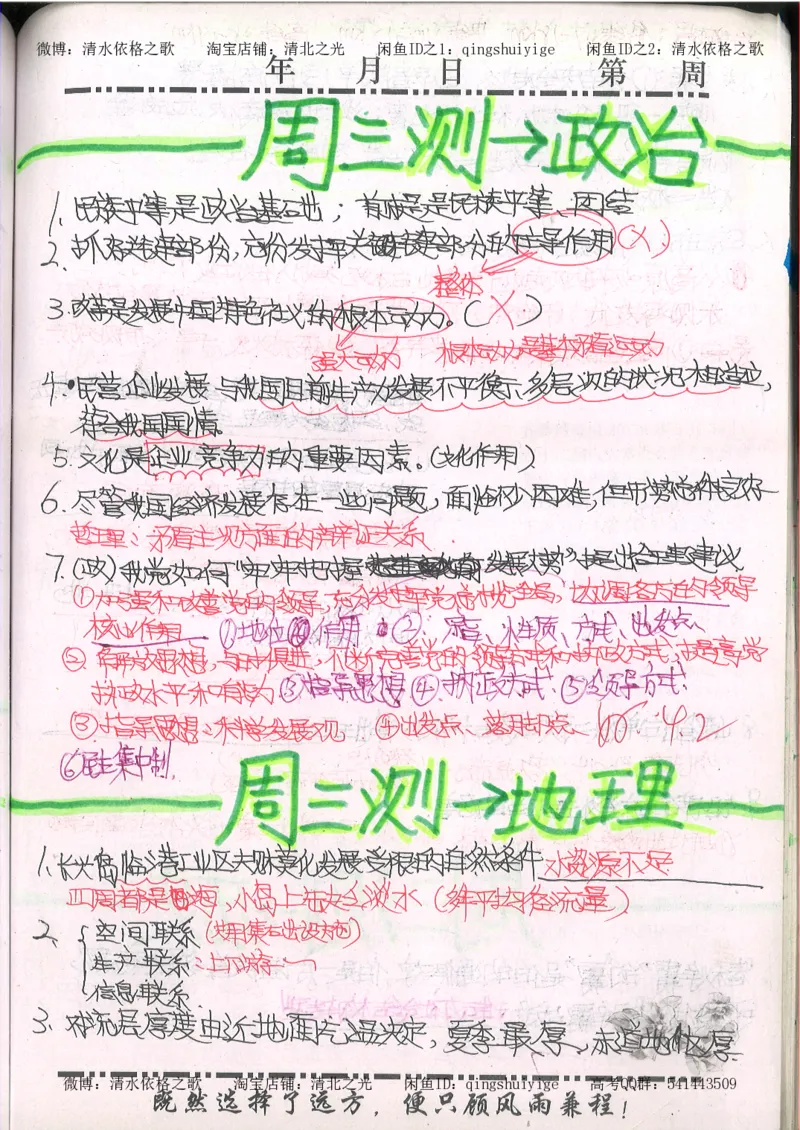 微博：清水依格之歌 淘宝店铺：清北之光 闲鱼ID之1：qingshuiyige 闲鱼ID之2：清水依格之歌
年 月 日 第 周
周三测→政治
1. 民族平等是政治基础；首要是民族平等、团结
2. 抓好关键部份，充份发挥关键部分的主导作用(×)
整体
3. 改革是发展中国特色社会主义的根本动力。(×)
强大动力 根本动力是基本矛盾运动
4. 民营企业发展与我国目前生产力发展不平衡、多层次的状况相适应，
符合我国国情。
5. 文化是企业竞争力的重要因素。(文化作用)
6. 尽管我国经济发展存在一些问题，面临不少困难，但形势总体良好
哲理：矛盾主次方面的辩证关系
7. (政)我党如何"牢牢把握 发展大势"提出合理建议
①加强和改善党的领导，充分发挥党总揽全局、协调各方的领导
核心作用 ①地位 作用 ②宗旨、性质、方式、出发点、
②解放思想，与时俱进，不断完善党的领导方式和执政方式，提高党
执政水平和能力 ③指导思想 ④执政方式 ⑤领导方式
③指导思想：科学发展观 ④出发点、落脚点
⑥民主集中制
周三测→地理
1. 长兴岛临港工业区 发展受限的自然条件 水资源不足
四周都是海，小岛上缺乏淡水
2. 空间联系
生产联系：
信息联系
3. 对流层厚度由近地面气温决定，夏季最厚，赤道地区厚
微博：清水依格之歌 淘宝店铺：清北之光 闲鱼ID：qingshuiyige 高考QQ群：541443509
既然选择了远方，便只顾风雨兼程！